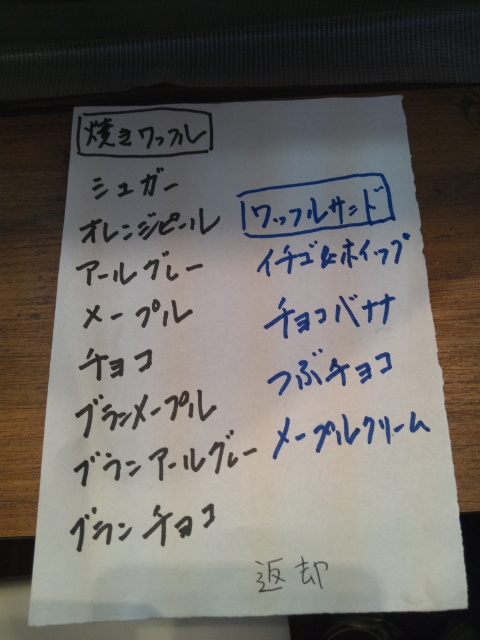 焼きワッフル
シュガー
オレンジピール
アールグレー
メープル
チョコ
ブランメープル
ブランアールグレー
ブランチョコ
ワッフルサンド
イチゴ&ホイップ
チョコバナナ
つぶチョコ
メープルクリーム
返却